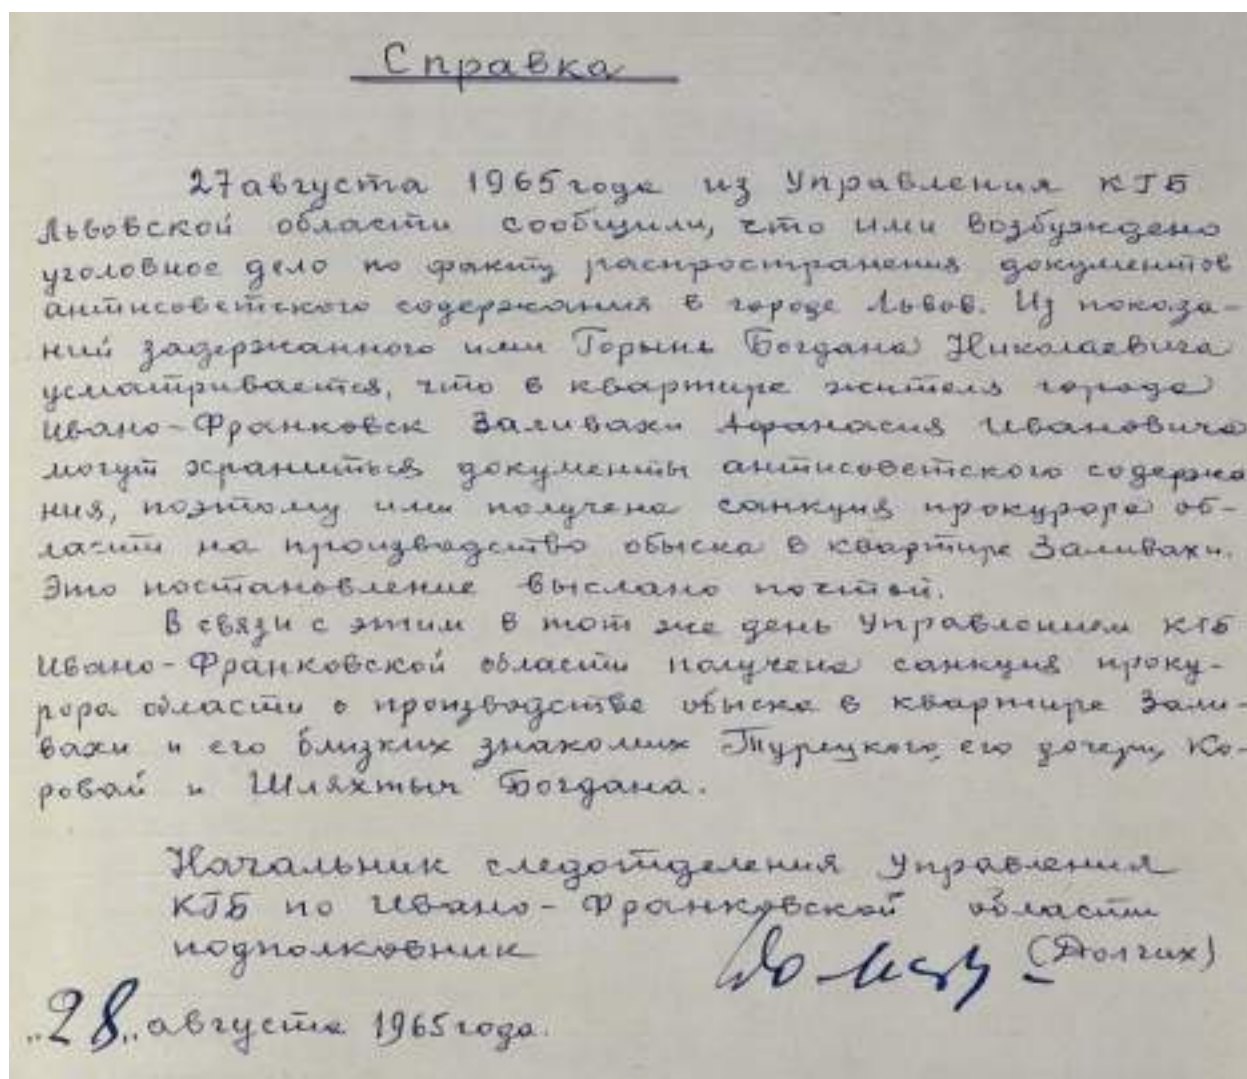 Справка
27 августа 1965 года из Управления КГБ
Львовской области сообщили, что ими возбуждено
уголовное дело по факту распространения документов
антисоветского содержания в городе Львов. Из показа-
ний задержанного ими Горынь Богдана Николаевича
усматривается, что в квартире жителя города
Ивано-Франковск Заливахи Афанасия Ивановича
могут храниться документы антисоветского содержа
ния, поэтому ими получена санкция прокурора об-
ласти на производство обыска в квартире Заливахи.
Это постановление выслано почтой.
В связи с этим в тот же день Управлением КГБ
Ивано-Франковской области получена санкция проку-
рора области о производстве обыска в квартире Зали-
вахи и его близких знакомих Турецкого, его дочери, Ко-
ровай и Шляхтыч Богдана.
Начальник следотделения Управления
КГБ по Ивано-Франковской области
подполковник (Долгих)
„28„ августа 1965 года.